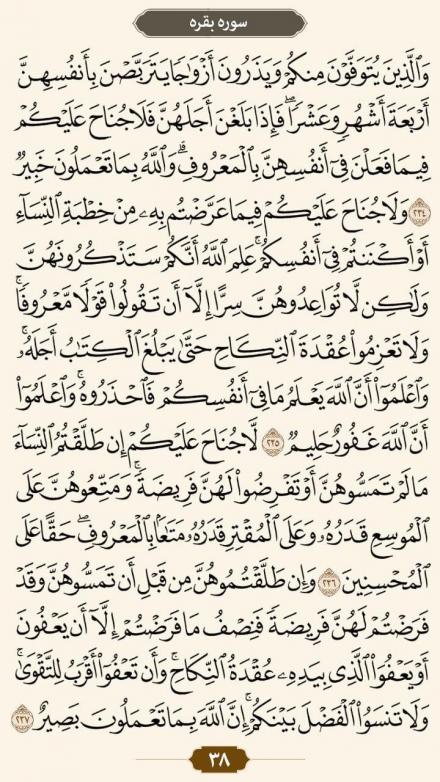 سوره بقره
وَالَّذِينَ يُتَوَفَّوْنَ مِنكُمْ وَيَذَرُونَ أَزْوَاجًا يَتَرَبَّصْنَ بِأَنفُسِهِنَّ
أَرْبَعَةَ أَشْهُرٍ وَعَشْرًا ۖ فَإِذَا بَلَغْنَ أَجَلَهُنَّ فَلَا جُنَاحَ عَلَيْكُمْ
فِيمَا فَعَلْنَ فِىٓ أَنفُسِهِنَّ بِالْمَعْرُوفِ ۗ وَاللَّهُ بِمَا تَعْمَلُونَ خَبِيرٌ
﴿٢٣٤﴾ وَلَا جُنَاحَ عَلَيْكُمْ فِيمَا عَرَّضْتُم بِهِۦ مِنْ خِطْبَةِ النِّسَآءِ
أَوْ أَكْنَنتُمْ فِىٓ أَنفُسِكُمْ ۚ عَلِمَ اللَّهُ أَنَّكُمْ سَتَذْكُرُونَهُنَّ
وَلَٰكِن لَّا تُوَاعِدُوهُنَّ سِرًّا إِلَّآ أَن تَقُولُوا۟ قَوْلًا مَّعْرُوفًا ۚ
وَلَا تَعْزِمُوا۟ عُقْدَةَ النِّكَاحِ حَتَّىٰ يَبْلُغَ الْكِتَٰبُ أَجَلَهُۥ ۚ
وَاعْلَمُوٓا۟ أَنَّ اللَّهَ يَعْلَمُ مَا فِىٓ أَنفُسِكُمْ فَاحْذَرُوهُ ۚ وَاعْلَمُوٓا۟
أَنَّ اللَّهَ غَفُورٌ حَلِيمٌ ﴿٢٣٥﴾ لَّا جُنَاحَ عَلَيْكُمْ إِن طَلَّقْتُمُ النِّسَآءَ
مَا لَمْ تَمَسُّوهُنَّ أَوْ تَفْرِضُوا۟ لَهُنَّ فَرِيضَةً ۚ وَمَتِّعُوهُنَّ عَلَى
الْمُوسِعِ قَدَرُهُۥ وَعَلَى الْمُقْتِرِ قَدَرُهُۥ مَتَٰعًۢا بِالْمَعْرُوفِ ۖ حَقًّا عَلَى
الْمُحْسِنِينَ ﴿٢٣٦﴾ وَإِن طَلَّقْتُمُوهُنَّ مِن قَبْلِ أَن تَمَسُّوهُنَّ وَقَدْ
فَرَضْتُمْ لَهُنَّ فَرِيضَةً فَنِصْفُ مَا فَرَضْتُمْ إِلَّآ أَن يَعْفُونَ
أَوْ يَعْفُوَا۟ الَّذِى بِيَدِهِۦ عُقْدَةُ النِّكَاحِ ۚ وَأَن تَعْفُوٓا۟ أَقْرَبُ لِلتَّقْوَىٰ ۚ
وَلَا تَنسَوُا۟ الْفَضْلَ بَيْنَكُمْ ۚ إِنَّ اللَّهَ بِمَا تَعْمَلُونَ بَصِيرٌ ﴿٢٣٧﴾
٣٨